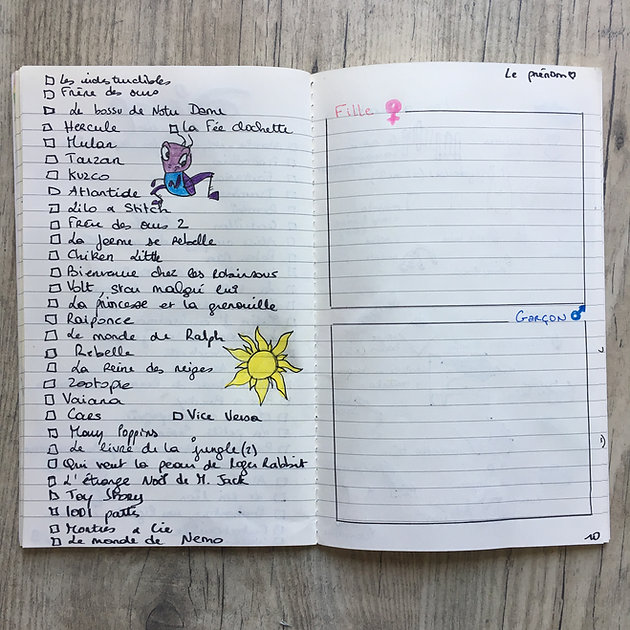 Les indestructibles
Frère des ours
Le bossu de Notre Dame
Hercule
La Fée clochette
Mulan
Tarzan
Kuzco
Atlantide
Lilo & Stitch
Frère des ours 2
La ferme se rebelle
Chiken Little
Bienvenue chez les robinsons
Volt, star malgré lui
La princesse et la grenouille
Raiponce
Le monde de Ralph
Rebelle
La Reine des neiges
Zootopie
Vaiana
Cars
Vice Versa
Mary Poppins
Le livre de la jungle (2)
Qui veut la peau de Roger Rabbit
L'étrange Noël de M. Jack
Toy Story
1001 pattes
Montres & Cie
Le monde de Nemo
Le prénom
Fille
Garçon
10